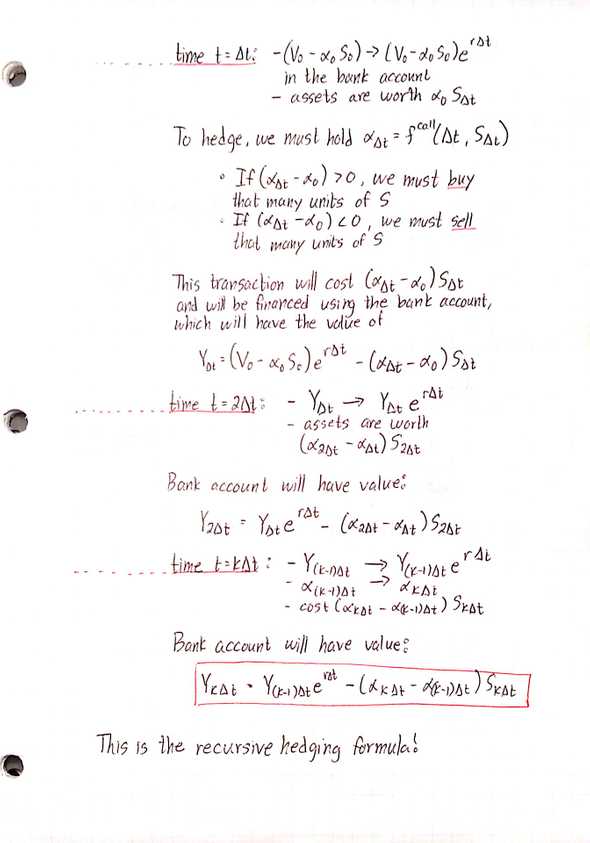 time t=Δt: -(V₀ - α₀S₀) → (V₀ - α₀S₀)e^{rΔt}
in the bank account
- assets are worth α₀S_{Δt}
To hedge, we must hold α_{Δt} = f^{call}(Δt, S_{Δt})
• If (α_{Δt} - α₀) > 0, we must buy
that many units of S
• If (α_{Δt} - α₀) < 0, we must sell
that many units of S
This transaction will cost (α_{Δt} - α₀)S_{Δt}
and will be financed using the bank account,
which will have the value of
Y_{Δt} = (V₀ - α₀S₀)e^{rΔt} - (α_{Δt} - α₀)S_{Δt}
time t=2Δt: - Y_{Δt} → Y_{Δt}e^{rΔt}
- assets are worth
(α_{2Δt} - α_{Δt})S_{2Δt}
Bank account will have value:
Y_{2Δt} = Y_{Δt}e^{rΔt} - (α_{2Δt} - α_{Δt})S_{2Δt}
time t=kΔt: - Y_{(k-1)Δt} → Y_{(k-1)Δt}e^{rΔt}
- α_{(k-1)Δt} → α_{kΔt}
- cost (α_{kΔt} - α_{(k-1)Δt})S_{kΔt}
Bank account will have value:
Y_{kΔt} = Y_{(k-1)Δt}e^{rΔt} - (α_{kΔt} - α_{(k-1)Δt})S_{kΔt}
This is the recursive hedging formula!